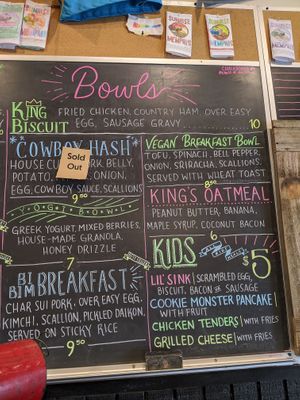 SUNRISE
MEMPHIS
SUNRISE
MEMPHIS
Bowls
KING BISCUIT
FRIED CHICKEN, COUNTRY HAM, OVER EASY
EGG, SAUSAGE GRAVY
10
*COWBOY HASH*
HOUSE CU BELLY,
POTATO, ONION,
EGG, COWBOY SAUCE, SCALLIONS
9.50
Sold
Out
YOGI BOWL
GREEK YOGURT, MIXED BERRIES,
HOUSE-MADE GRANOLA,
HONEY DRIZZLE
7
BI BIM BREAKFAST
CHAR SUI PORK, OVER EASY EGG,
KIMCHI, SCALLION, PICKLED DAIKON,
SERVED ON STICKY RICE
9.50
VEGAN BREAKFAST BOWL
TOFU, SPINACH, BELL PEPPER,
ONION, SRIRACHA, SCALLIONS,
SERVED WITH WHEAT TOAST
8.50
KING'S OATMEAL
PEANUT BUTTER, BANANA,
MAPLE SYRUP, COCONUT BACON
6
KIDS
$5
LIL' SINK | SCRAMBLED EGG,
BISCUIT, BACON OR SAUSAGE
COOKIE MONSTER PANCAKE |
WITH FRUIT
CHICKEN TENDERS | WITH FRIES
GRILLED CHEESE | WITH FRIES